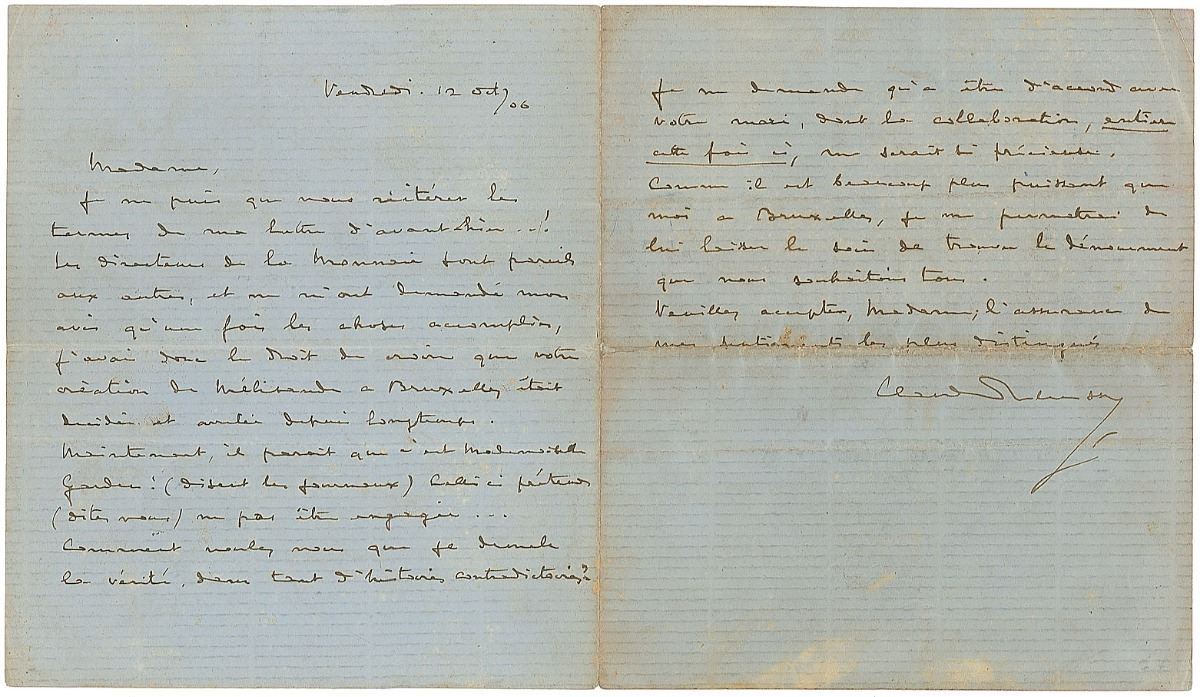 Vendredi. 12 oct/06
Madame,
Je ne puis que vous réitérer les
termes de ma lettre d'avant-hier...!
Les directeurs de la Monnaie sont pareils
aux autres, et ne m'ont demandé mon
avis qu'une fois les choses accomplies,
j'avais donc le droit de croire que votre
création de Mélisande a Bruxelles, était
décidée et arrêtée depuis longtemps.
Maintenant, il parait que c'est Mademoiselle
Garden! (disent les journaux) Celle ci prétend
(dites vous) ne pas être engagée...
Comment voulez vous que je démêle
la vérité, dans tant d'histoires contradictoires?
Je ne demande qu'a être d'accord avec
votre mari, dont la collaboration, entière
cette fois ci, me serait si précieuse.
Comme il est beaucoup plus puissant que
moi a Bruxelles, je me permettrai de
lui laisser le soin de trouver le dénouement
que nous souhaitons tous.
Veuillez accepter, Madame, l'assurance de
mes sentiments les plus distingués
Claude Debussy